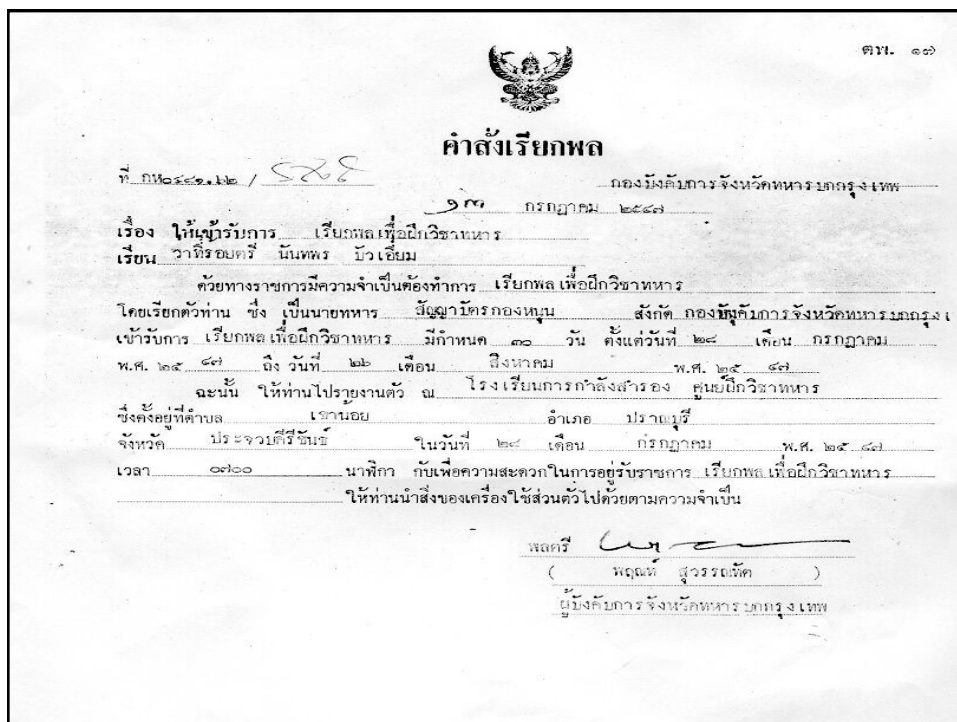 ตพ. ๑๗
คำสั่งเรียกพล
ที่ กห๐๔๘๑.๖๒ /
กองบังคับการจังหวัดทหารบกกรุงเทพ
๑๓ กรกฎาคม ๒๕๔๗
เรื่อง ให้เข้ารับการ เรียกพลเพื่อฝึกวิชาทหาร
เรียน ว่าที่รอบตรี นันทพร บัวเอี่ยม
ด้วยทางราชการมีความจำเป็นต้องทำการ เรียกพลเพื่อฝึกวิชาทหาร
โดยเรียกตัวท่าน ซึ่ง เป็นนายทหาร สัญญาบัตรกองหนุน สังกัด กองบังคับการจังหวัดทหารบกกรุงเ
เข้ารับการ เรียกพลเพื่อฝึกวิชาทหาร มีกำหนด ๓๐ วัน ตั้งแต่วันที่ ๒๘ เดือน กรกฎาคม
พ.ศ. ๒๕ ๔๗ ถึง วันที่ ๒๖ เดือน สิงหาคม พ.ศ. ๒๕ ๔๗
ฉะนั้น ให้ท่านไปรายงานตัว ณ โรงเรียนการกำลังสำรอง ศูนย์ฝึกวิชาทหาร
ซึ่งตั้งอยู่ที่ตำบล เขาน้อย อำเภอ ปราณบุรี
จังหวัด ประจวบคีรีขันธ์ ในวันที่ ๒๘ เดือน กรกฎาคม พ.ศ. ๒๕ ๔๗
เวลา ๐๗๐๐ นาฬิกา กับเพื่อความสะดวกในการอยู่รับราชการ เรียกพลเพื่อฝึกวิชาทหาร
ให้ท่านนำสิ่งของเครื่องใช้ส่วนตัวไปด้วยตามความจำเป็น
พลตรี
( พฤณท์ สุวรรณทัต )
ผู้บังคับการจังหวัดทหารบกกรุงเทพ